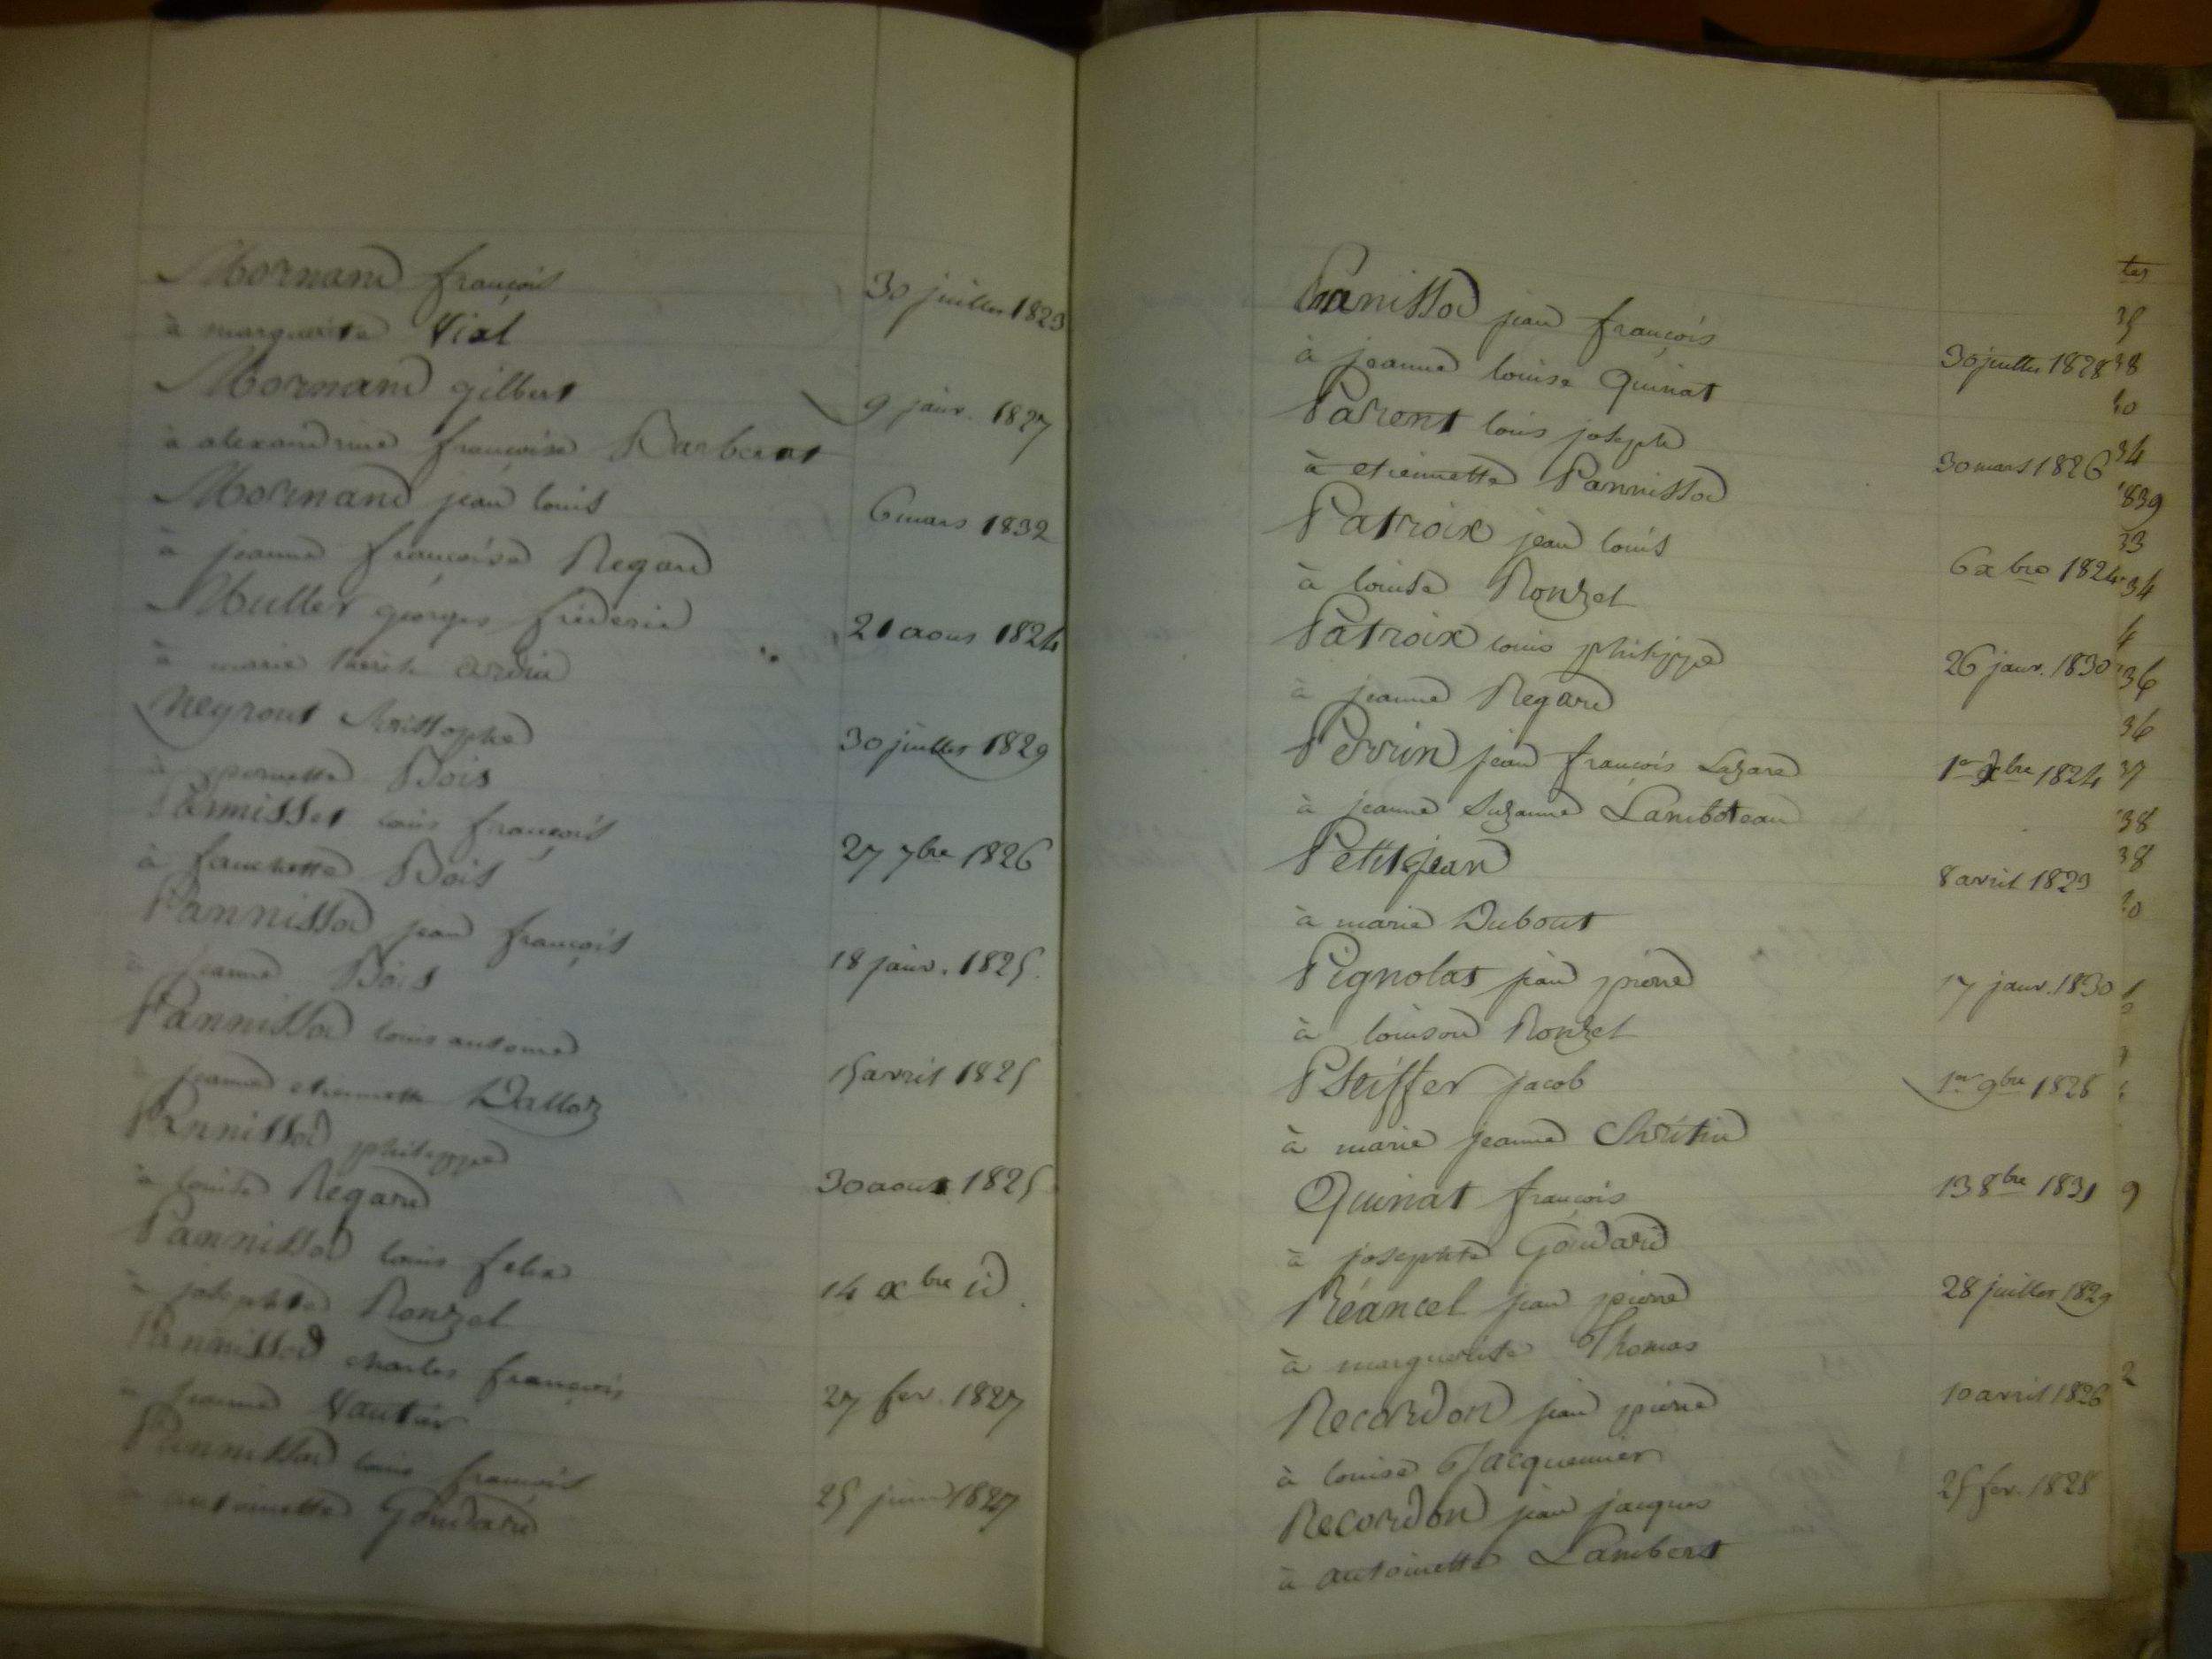 Mornand françois 30 juillet 1823
à marguerite Vial
Mornand gilbert 9 janv. 1827
à alexandrine françoise Barberat
Mornand jean louis 6 mars 1832
à jeanne françoise Regard
Muller georges frédéric 21 aout 1824
à marie
Neyrout Christophe 30 juillet 1829
à pernette Bois
louis françois 27 7bre 1826
à fanchette Bois
Pannissod jean françois 18 janv. 1825.
à jeanne Bois
Pannissod louis antoine 15 avril 1825
jeanne etiennette Dalloz
Pannissod philippe 30 aout 1825
à louise Regard
Pannissod louis felix 14 xbre id.
à josephte Ronzel
Pannissod charles françois 27 fev. 1827
à jeanne Vautier
Pannissod louis françois 25 juin 1827
à antoinette Goudard
Panissod jean françois 30 juillet 1828
à jeanne louise Quinat
Parent louis joseph 30 mars 1826
à etiennette Pannissod
Patroix jean louis 6 xbre 1824
à louise Ronzel
Patroix louis philippe 26 janv. 1830
à jeanne Regard
Perrin jean françois Lazare 1er xbre 1824
à jeanne Suzanne Lamboteau
Petitjean 8 avril 1823
à marie Dubout
Pignolat jean pierre 17 janv. 1830
à louison Ronzel
Pfeiffer jacob 1er 9bre 1828
à marie jeanne
Quinat françois 13 8bre 1831
à josephte Goudard
Réancel jean pierre 28 juillet 1829
à marguerite Thomas
Recordon jean pierre 10 avril 1826
à louise Jacquemier
Recordon jean jacques 25 fev. 1828
à antoinette Lambert
tes
35
38
40
34
1839
33
34
4
36
36
37
38
38
40
9
2